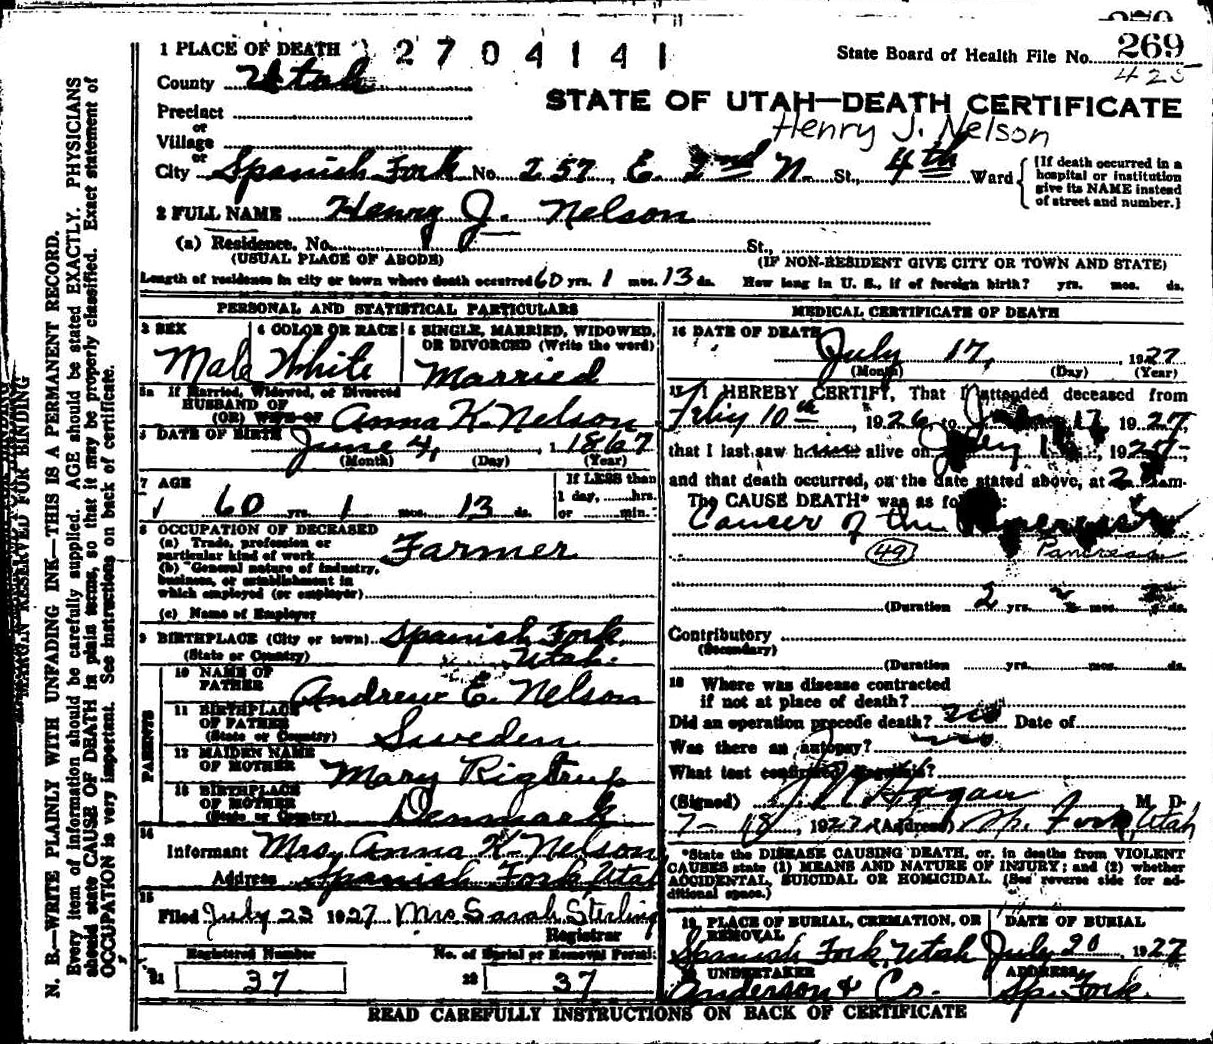 269
1 PLACE OF DEATH 2704141
State Board of Health File No. 425
County Utah
STATE OF UTAH—DEATH CERTIFICATE
Precinct
Henry J. Nelson
or
Village
or
City Spanish Fork No. 257, E. 2nd N. St., 4th Ward {[If death occurred in a hospital or institution give its NAME instead of street and number.]
2 FULL NAME Henry J. Nelson
(a) Residence, No. St.,
(USUAL PLACE OF ABODE) (IF NON-RESIDENT GIVE CITY OR TOWN AND STATE)
Length of residence in city or town where death occurred 60 yrs. 1 mos. 13 ds. How long in U. S., if of foreign birth? yrs. mos. ds.
PERSONAL AND STATISTICAL PARTICULARS
3 SEX Male
4 COLOR OR RACE White
5 SINGLE, MARRIED, WIDOWED, OR DIVORCED (Write the word) Married
5a If Married, Widowed, or Divorced
HUSBAND OF
(OR) WIFE OF Anna K. Nelson
6 DATE OF BIRTH June 4, 1867
(Month) (Day) (Year)
7 AGE 60 yrs. 1 mos. 13 ds.
If LESS than
1 day, hrs.
or min.
8 OCCUPATION OF DECEASED
(a) Trade, profession or
particular kind of work Farmer
(b) General nature of industry,
business, or establishment in
which employed (or employer)
(c) Name of Employer
9 BIRTHPLACE (City or town) Spanish Fork
(State or Country) Utah.
PARENTS
10 NAME OF FATHER Andrew E. Nelson
11 BIRTHPLACE OF FATHER (State or Country) Sweden
12 MAIDEN NAME OF MOTHER Mary Rigtrup
13 BIRTHPLACE OF MOTHER (State or Country) Denmark
14
Informant Mrs Anna K. Nelson
Address Spanish Fork Utah
15
Filed July 23 1927 Mrs Sarah Sterling
Registrar
Registered Number No. of Burial or Removal Permit
21 37 22 37
MEDICAL CERTIFICATE OF DEATH
16 DATE OF DEATH July 17, 1927
(Month) (Day) (Year)
17 I HEREBY CERTIFY, That I attended deceased from
10th, 1926 to 17, 1927,
that I last saw him alive on July 192
and that death occurred, on the date stated above, at 2 am.
The CAUSE DEATH* was as
Cancer of the Pancreas
(49) Pancreas
(Duration 2 yrs. mos. ds.
Contributory
(Secondary)
(Duration yrs. mos. ds.
18 Where was disease contracted
if not at place of death?
Did an operation precede death? no Date of
Was there an autopsy? no
What test confirmed diagnosis?
(Signed) Hagan M. D.
7-18, 1927 (Address) Sp. Fork, Utah
*State the DISEASE CAUSING DEATH, or, in deaths from VIOLENT
CAUSES state (1) MEANS AND NATURE OF INJURY; and (2) whether
ACCIDENTAL, SUICIDAL OR HOMICIDAL. (See reverse side for ad-
ditional space.)
19 PLACE OF BURIAL, CREMATION, OR REMOVAL DATE OF BURIAL
Spanish Fork, Utah July 20, 1927
20 UNDERTAKER ADDRESS
Anderson & Co. Sp. Fork.
READ CAREFULLY INSTRUCTIONS ON BACK OF CERTIFICATE
MARGIN RESERVED FOR BINDING
N. B.—WRITE PLAINLY WITH UNFADING INK—THIS IS A PERMANENT RECORD.
Every item of information should be carefully supplied. AGE should be stated EXACTLY. PHYSICIANS
should state CAUSE OF DEATH in plain terms, so that it may be properly classified. Exact statement of
OCCUPATION is very important. See instructions on back of certificate.